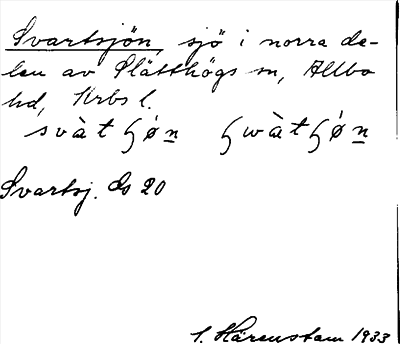 Svartsjön, sjö i norra de-
len av Slätthögs sn, Allbo
hd, Krbs l.
svàtʃøn ʃwàtʃøn
Svartsj. Gs 20
S. Härenstam 1933